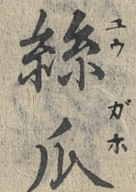 絲瓜
ユウガホ